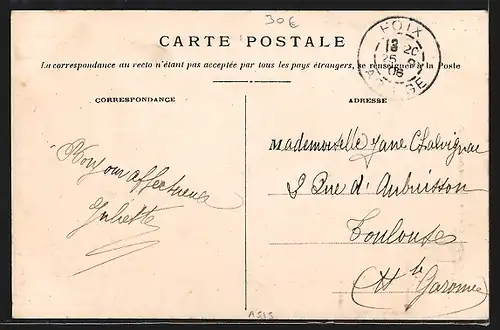 30€
CARTE POSTALE
La correspondance au recto n'étant pas acceptée par tous les pays étrangers, se renseigner à la Poste
FOIX
ARIEGE
CORRESPONDANCE
ADRESSE
Bonjour affectueux
Juliette
Mademoiselle Jane Chalvignac
8 Rue d'Aubuisson
Toulouse
(Hte Garonne)